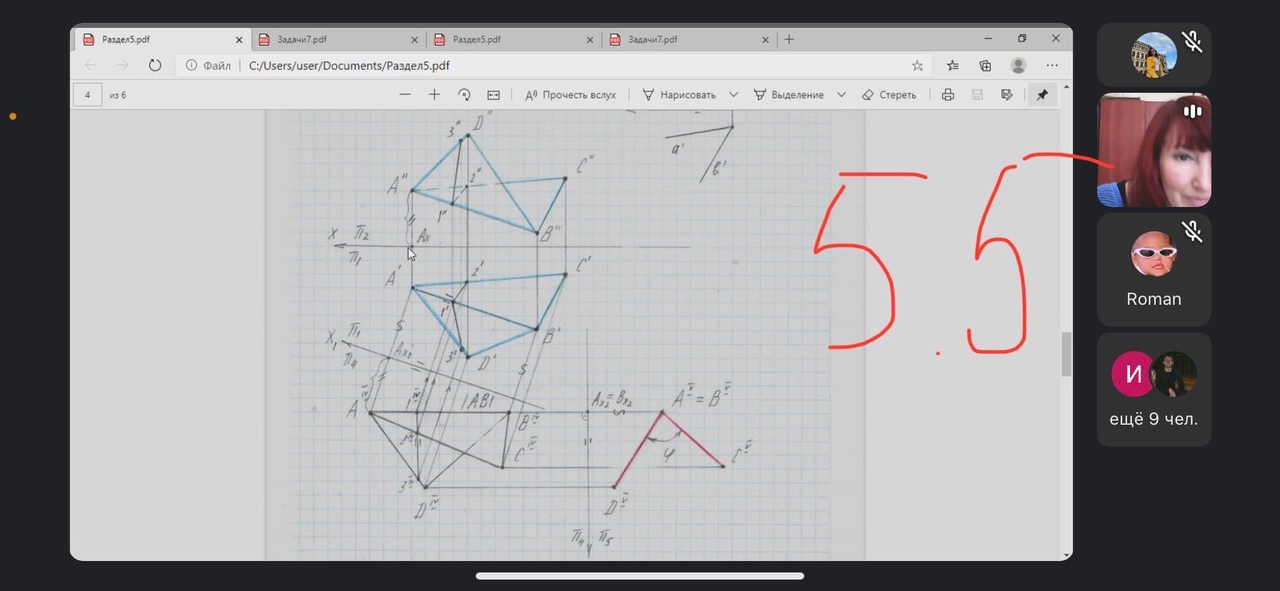 Раздел5.pdf
Задачи7.pdf
Раздел5.pdf
Задачи7.pdf
Файл C:/Users/user/Documents/Раздел5.pdf
4 из 6
Прочесть вслух Нарисовать Выделение Стереть
3" D"
a'
в'
C"
A" 2"
1"
X П2 Ax B"
П1
2' C'
A'
1'
S B'
X1 П1 3' D'
П4 S
A^IV 1^IV |AB| B^IV Ax2=Bx2 A^V=B^V
2^IV C^IV φ C^V
3^IV
D^IV D^V
П4 П5
5.5
Roman
И
ещё 9 чел.